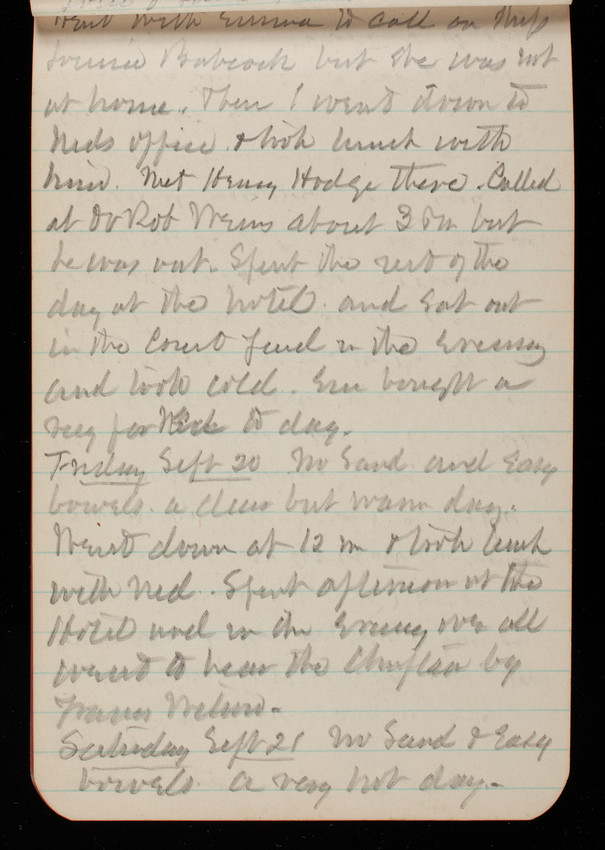 Went with Emma to call on Miss
Louise Babcock but she was not
at home. Then I went down to
Neds office & took lunch with
him. Met Henry Hodge there. Called
at Dr Rob Weirs about 3 Pm but
he was out. Spent the rest of the
day at the hotel. and Sat out
in the Court Yard in the Evening
and took cold. Em bought a
rug for to day.
Friday Sept 20 No Sand and Easy
bowels. a clear but warm day.
Went down at 12 m & took lunch
with Ned. Spent afternoon at the
Hotel and in the Evening we all
went to hear the Chieftain by
Francis Wilson.
Saturday Sept 21 No Sand & Easy
bowels. a very hot day.